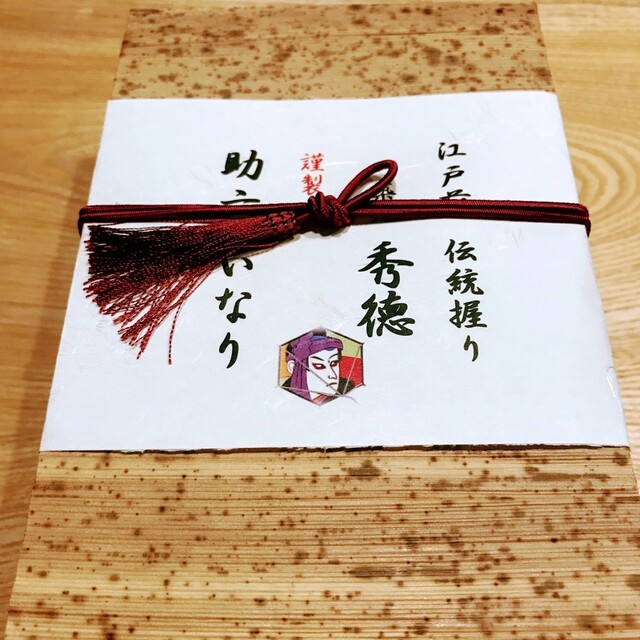 江戸前 伝統握り
秀徳
謹製
助六いなり